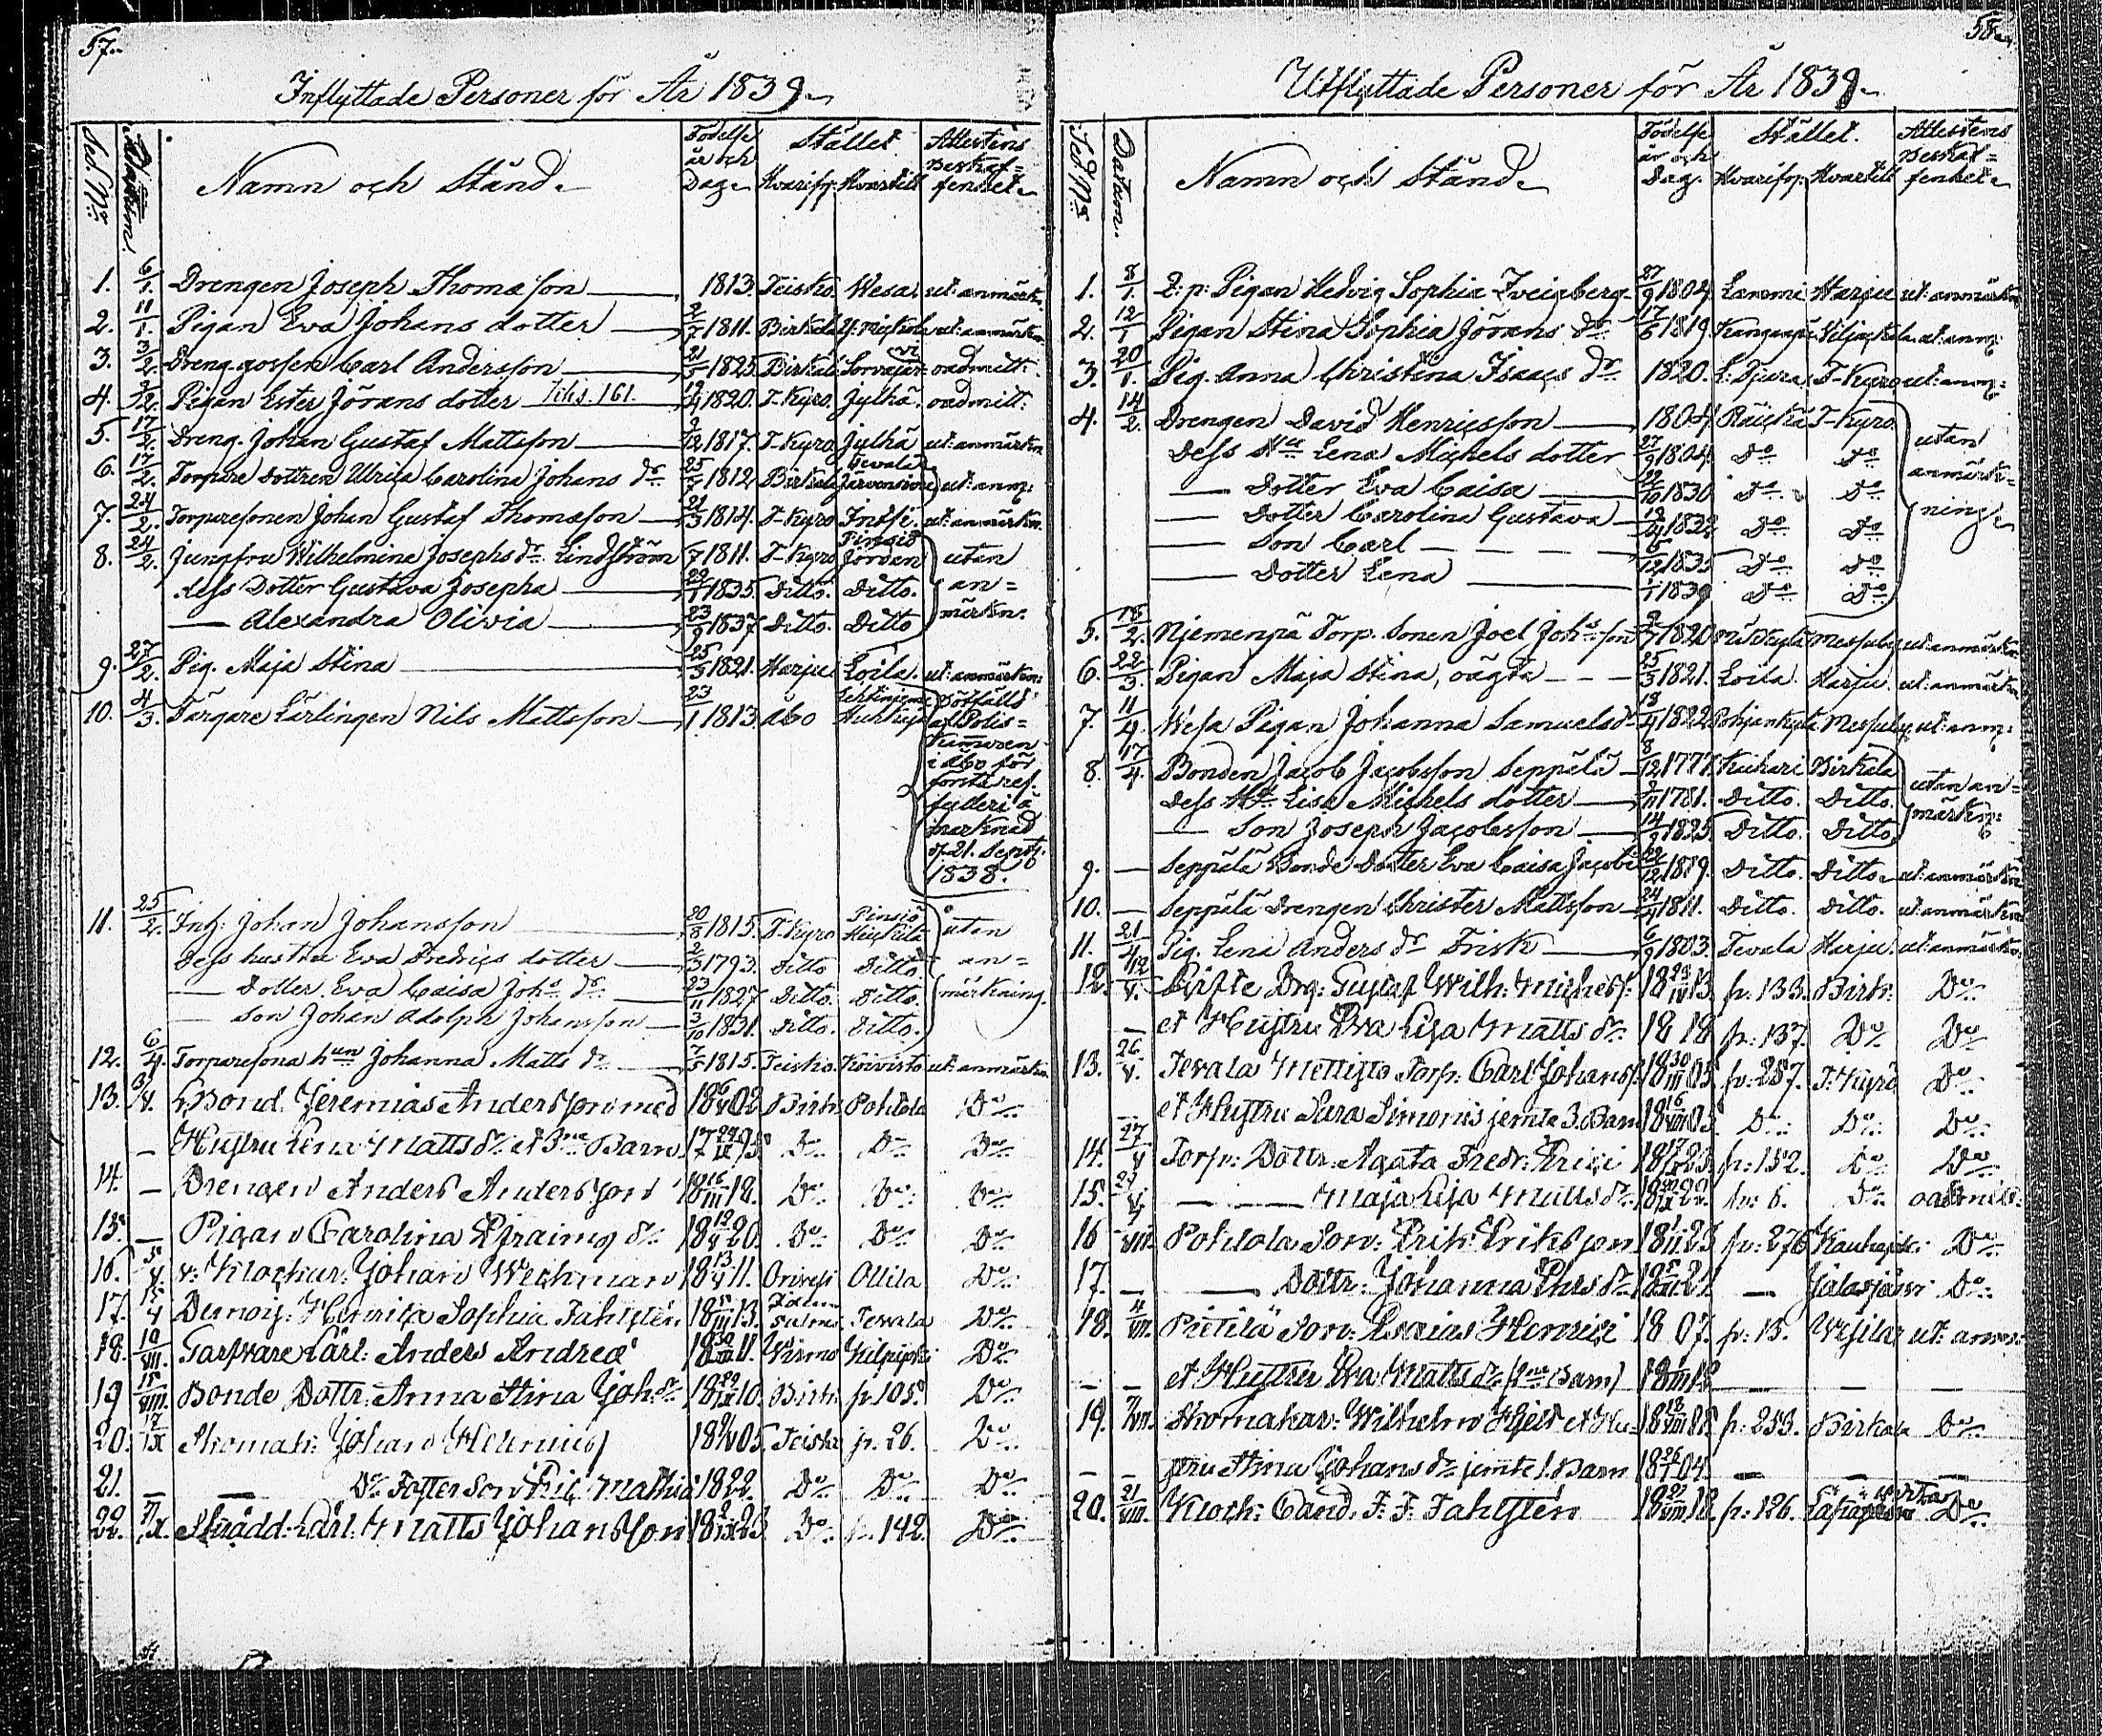 57.
Inflyttade Personer för År 1839.
Sed. No Datum. Namn och Stånd. Födelse år och Dag. Stället Hvarifr. Hvartill Attestens Beskaffenhet.
1. 6/1. Drengen Joseph Thomasson 1813. Teisko. Wesa. ut: anmärk.
2. 11/1. Pigan Eva Johans dotter 2/7 1811. Birkala ut: anmärkn.
3. 3/2. Dreng gossen Carl Andersson 21/5 1825. Birkal Sorvajärvi oadmitt:
4. /2. Pigan Ester Jörans dotter 1820. T-Kyro. Jylhä. oadmitt:
5. 17/2. Dreng. Johan Gustaf Mattsson /12 1817. T-Kyro. Jylhä ut: anmärkn
6. 17/2. Torpare Dottren Ulrica Carolina Johans dr. 25/7 1812. Birkala Tevala Järvensivu ut: anm:
7. 24/2. Torparesonen Johan Gustaf Thomasson 21/3 1814. T-Kyro Intfi. ut: anmärkn.
8. 24/2. Jungfru Wilhelmina Josephs dr. Lindström /7 1811. T-Kyro Pinsiö Jordan utan
dess Dotter Gustava Josepha 1835. Ditto. Ditto. an=
— Alexandra Olivia 23/9 1837. Ditto. Ditto märkn:
9. 27/2. Pig. Maja Stina 25/3 1821. Harju Loila. ut: anmärkn:
10. 4/3. Färgare Lärlingen Nils Mattsson 23/1 1813. Åbo Lehtiniemi Bötfälld
af Polis=
Kammaren
i Åbo för
första res.
fylleri å
marknad
d. 21. Sept:
1838.
11. 25/2. Inh: Johan Johansson 20/3 1815. T-Kyro Pinsiö Heickilä utan
Dess hustru Eva Fredrics dotter 2/3 1793. Ditto Ditto. an=
— Dotter. Eva Caisa Johs. dr. 23/11 1827. Ditto. Ditto. märkning.
— Son Johan Adolph Johansson 3/10 1831. Ditto. Ditto.
12. 6/4. Torparesona hun Johanna Matts dr 7/5 1815. Teisko. Koivisto ut: anmärkn
13. 3/V. Bond. Jeremias Andersson med 18 6/V 02. Birk. Pohtola Do
— Hustru Lena Matts dr. et 3ne Barn 1795 Do Do Do
14. — Drengen Anders Andersson 18 16/III 18. Do Do Do
15. — Pigan Carolina Efraims dr. 18 12/V 20. Do Do Do
16. 5/V v: Klockar: Johan Weckman 18 13/V 11. Orivesi Ollila Do
17. 15/V Demois: Henrika Sophia Fahlsten 18 5/III 13. Tevala Do
18. 19/VII. Garfvare Lärl: Anders Andreæ 18 30/XII 11. Wirmo Kilpijoki Do
19 15/VIII. Bonde Dottr. Anna Stina Joh. dr. 18 29/IX 10. Birk. p. 105. Do
20. 17/IX Skomak: Johan Helenius 1805. Teisko p. 26. Do
21. — Do Foster Son Eric Mathiæ 1822. Do Do Do
22. 7/X. Skrädd. Lärl. Matts Johansson 1823. Do p. 142. Do
58.
Utflyttade Personer för År 1839.
Sed. No Datum. Namn och Stånd. Födelse år och Dag. Stället. Hvarifr. Hvartill Attestens Beskaffenhet.
1. 8/1. Q: p: Pigan Hedvig Sophia Zveigberg 27/9 1804. Lammi Harju ut: anmärkn
2. 12/1 Pigan Stina Sophia Jörans dr. 17/6 1819. Kangasp: Viljackala. ut: anm:
3. 20/1. Pig. Anna Christina Isaacs dr 1820. T-Kyro ut: anm:
4. 14/2. Drengen David Henricsson 1804. Räickä T-Kyro utan
Dess Hu Lena Michels dotter 27/9 1804. Do Do anmärk=
— Dotter Eva Caisa 22/10 1830. Do Do ning.
— Dotter Carolina Gustava 1832. Do Do
— Son Carl 6/12 1835. Do Do
— Dotter Lena 1/1 1839 Do Do
5. 18/2. Njemenpä Torp. Sonen Joel Johs.son /7 1820 Messuby ut: anmärkn
6. 22/3. Pigan Maja Stina, oägta 25/3 1821. Loila. Harju. ut: anmärkn
7. 11/4. Wesa Pigan Johanna Samuels dr 18/4 1822. Pohjankylä Messuby ut: anm:
8. 17/4. Bonden Jacob Jacobsson Seppälä 8/12 1777. Kuckari Birkala utan an=
Dess Hu Lisa Michels dotter /11 1781. Ditto. Ditto. märkn:
— Son Joseph Jacobsson 14/9 1825. Ditto. Ditto
9. — Seppälä Bonde Dotter Eva Caisa Jacobs 22/12 1819. Ditto. Ditto. ut: anmärkn
10. — Seppälä Drengen Christer Mattsson 24/4 1811. Ditto. Ditto. ut: anmärkn
11. 21/4. Pig. Lena Anders dr Frisk 6/9 1803. Tevala Harju. ut: anmärkn.
12. 12/V. Gifte Drg: Gustaf Wilh: Michelss: 18 23/IV 13. p. 133. Birk: Do
— et Hustru Eva Lisa Matts dr. 1818 p: 137. Do Do
13. 26/V. Tevala Mettisto Torp: Carl Johanss: 18 30/III 05. p: 257. T: Kyro Do
— et Hustru Sara Simonis jemte 3. Barn 18 16/VIII 05. Do Do Do
14. 27/V Torp: Dottr. Agata Fredr: Krici 18 17/X 23. p: 152. Do Do
15. 29/V. — Maja Lisa Matts dr. 1822. p: 6. Do oadmitt:
16 7/VII. Pohtola Son: Erik Eriksson 18 1/II 23. p: 276 Kauhajoki Do
17. — Dottr: Johanna Ericks dr. 1821. — Jalasjärvi Do
18. 4/VII. Pietilä Son: Esaias Henrici 1807. p: 15. Wesilax ut: anm:
— et Hustru Eva Matts dr. (1ne Barn) 1812 — — —
19. 7/VII. Skomakar: Wilhelm Hjelt et Hu= p: 253. Birkala Do
— stru Stina Johans dr. jemte 1. Barn 18 26/I 04. — — —
20. 21/VIII. Klock: Cand. F. F. Fahlsten 18 22/VIII 18. p: 126. Do